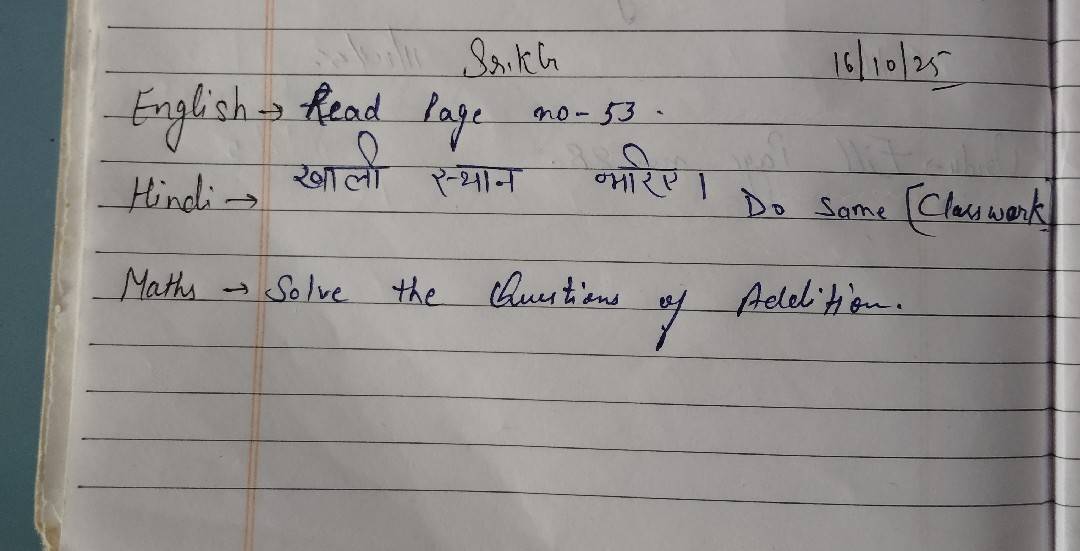 Sr.KG 16/10/25
English → Read Page no - 53.
Hindi → खाली स्थान भरिए। Do Same [Classwork]
Maths → Solve the Questions of Addition.